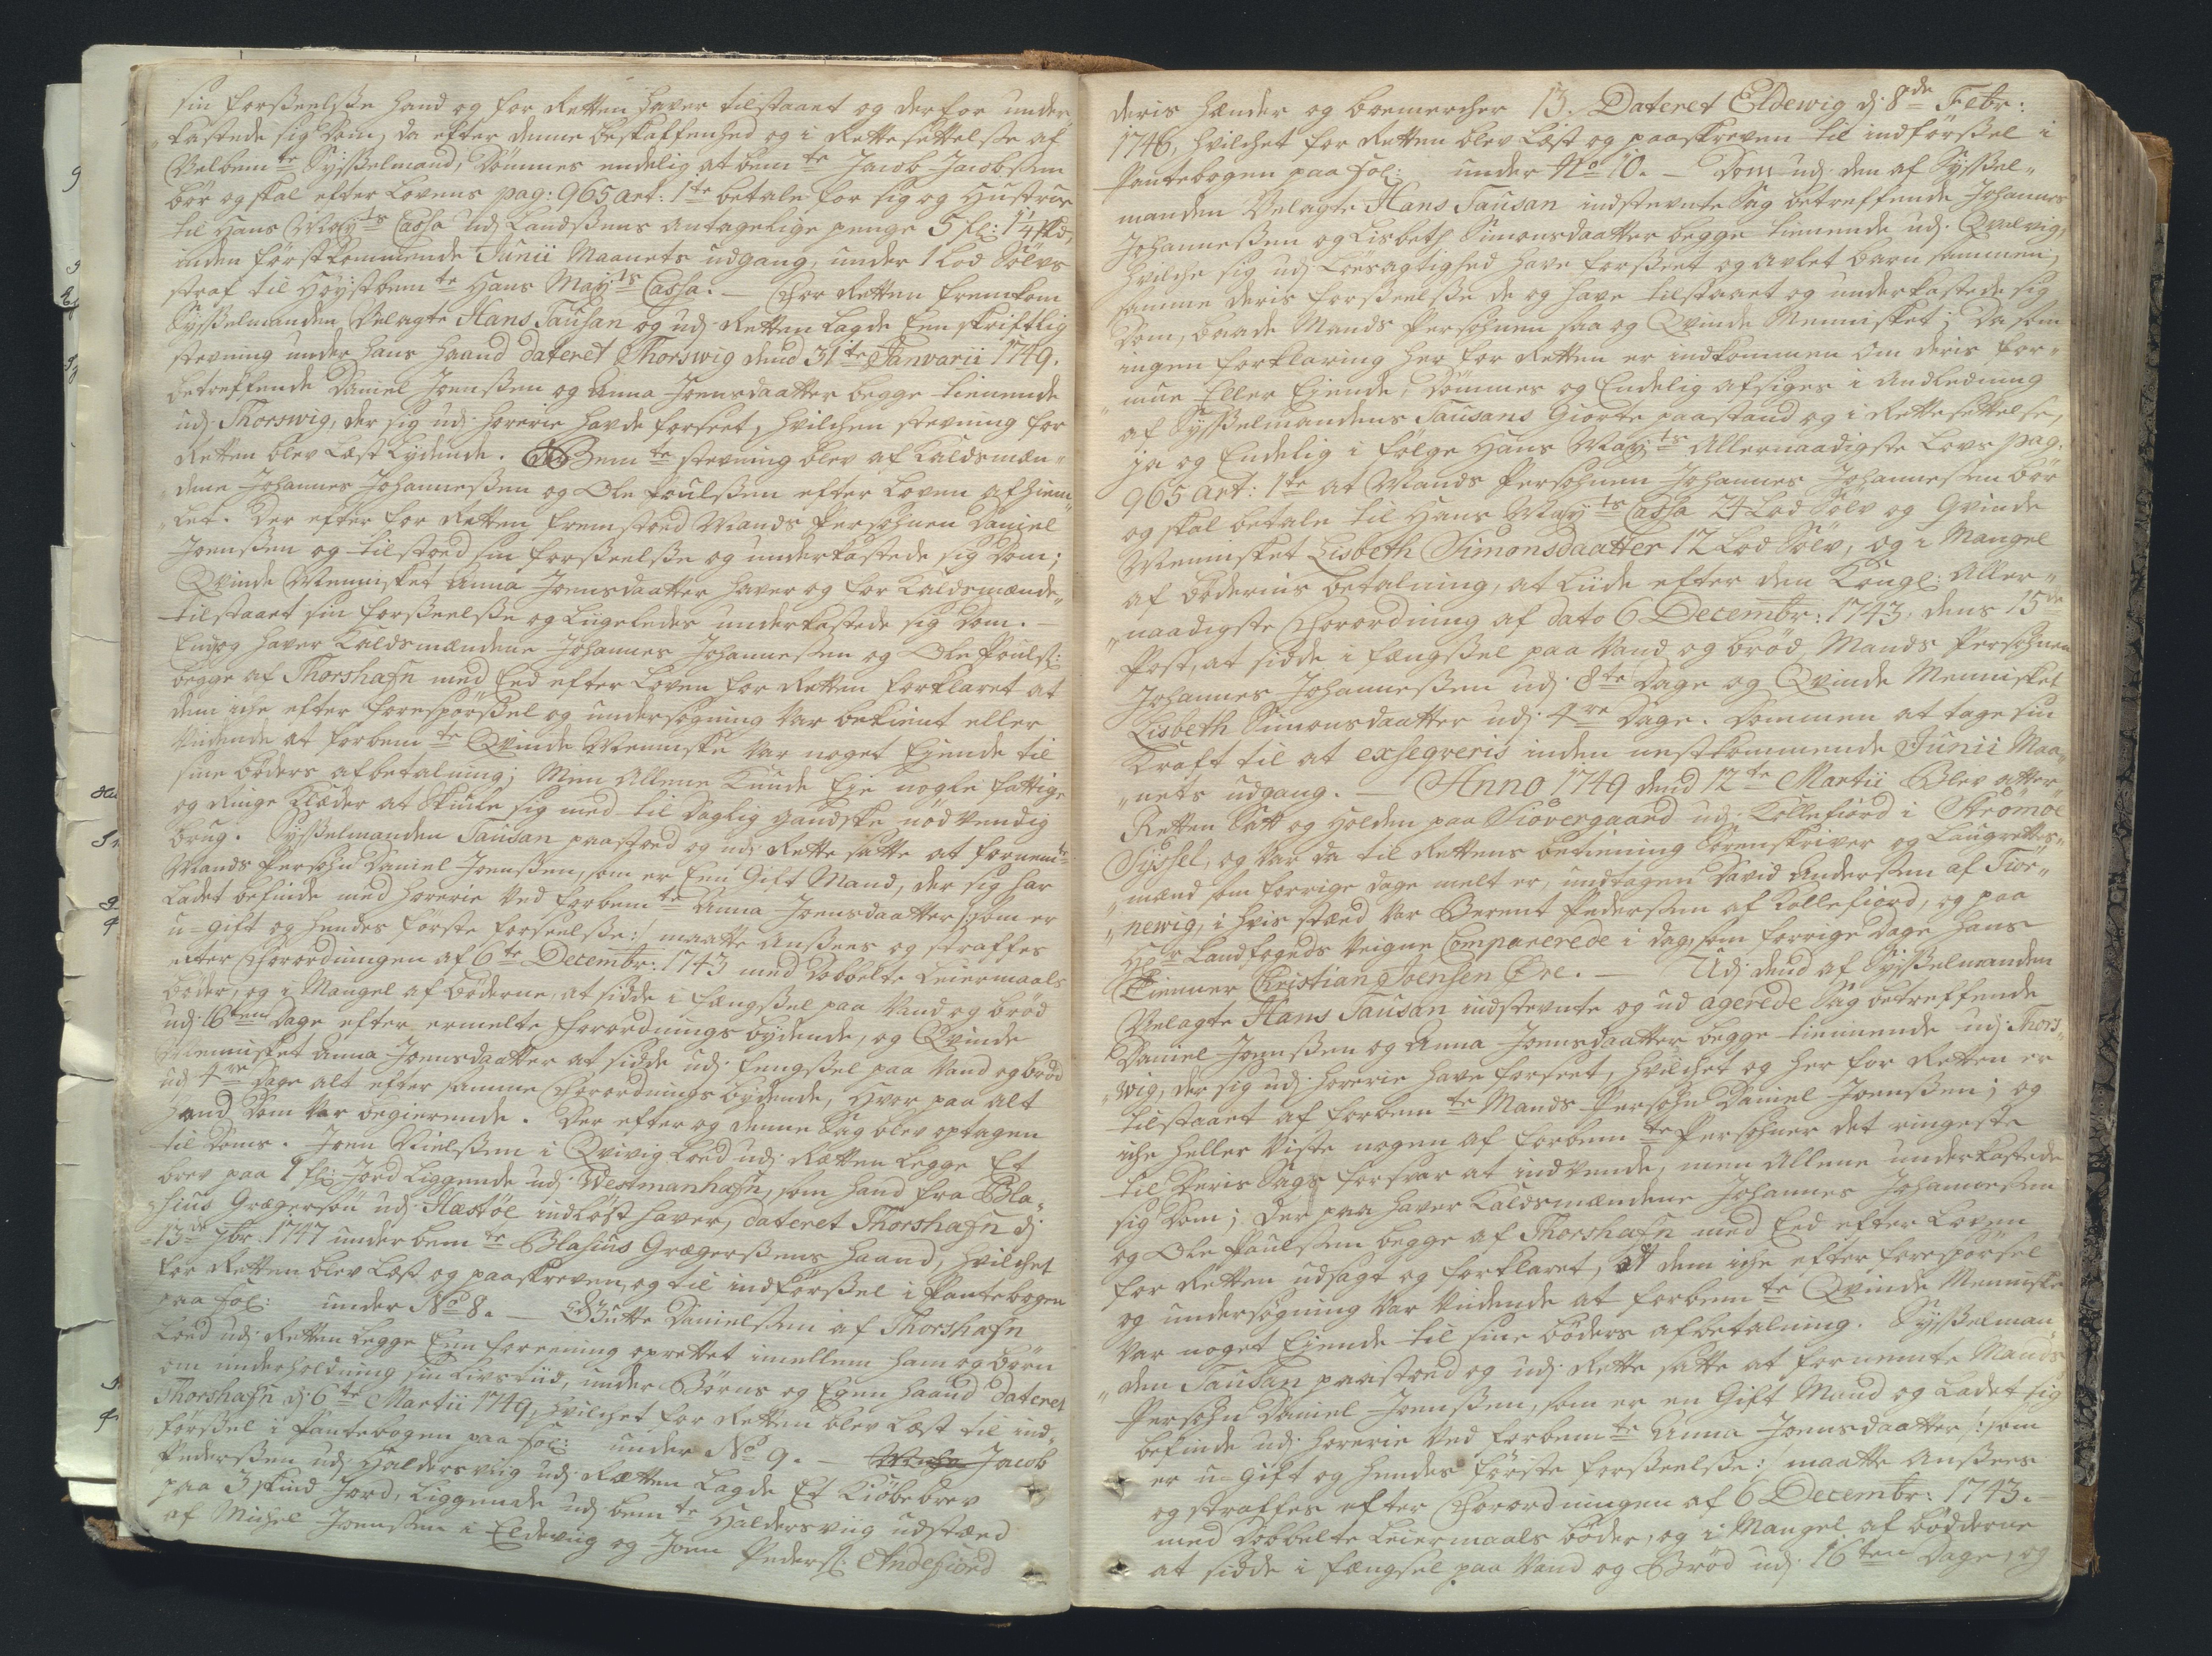 sin forseelse Hand og for Retten haver tilstaaet og derfor under„
„kastede sig Dom, da efter denne beskaffenhed og i Rettesettelse af
Velbem.te Sysselmand, Dømmes endelig at bem.te Jacob Jacobsen
bør og skal efter Lovens pag: 965 art: 1.te betale for sig og Hustrue
til Hans May.ts Cassa udj Landsens Antagelige penge 5 fl: 1¼ skd,
inden førstkommende Junii Maanets udgang, under 1 Lod Sølvs
straf til Høystbem.te Hans May.ts Cassa. — For Retten fremkom
Sysselmanden Velagte Hans Tausan og udj Retten lagde Een skriftlig
stevning under hans Haand dateret Thorswig dend 31.te Janvarii 1749.
betreffende Daniel Joensen og Anna Joensdaatter begge tienende
udj Thorswig, der sig udj horerie havde forseet, hvilchen stevning for
Retten blev Læst Lydende. Bem.te stevning blev af Kaldsmæn„
„dene Johannes Johannesen og Ole Poulsen efter Loven afhiem„
„let. Der efter for Retten fremstoed Mands Persohnen Daniel
Joensen og tilstoed sin forseelse og underkastede sig Dom;
Qvinde Mennisket Anna Joensdaatter haver og for Kaldsmænde„
tilstaaet sin forseelse og Liigeledes underkastede sig Dom. —
Endog haver Kaldsmændene Johannes Johannesen og Ole Pouls:
begge af Thorshafn med Eed efter Loven for Retten forklaret at
dem iche efter forespørsel og undersøgning var bekient eller
vidende at forbem.te Qvinde Menniske var noget Ejende til
sine bøders afbetalning; Men Allene Kunde Eje nogle fattige
og Ringe Klæder at Skiule sig med til Daglig gandske nødvendig
brug. Sysselmanden Tausan paastoed og udj Rette satte at fornem.te
Mands Persohn Daniel Joensen, som er Een Gift Mand, der sig har
Ladet befinde med horerie ved forbem.te Anna Joensdaatter /: som er
u=gift og hendes første forseelse :/ maatte Ansees og straffes
efter Forordningen af 6.te Decembr: 1743 med Dobbelte Leiermaals
bøder, og i Mangel af bøderne, at sidde i fængsel paa Vand og brød
udj 16.ten Dage efter ermelte Forordnings bydende, og Qvinde
Mennisket Anna Joensdaatter at sidde udj fengsel paa Vand og brød
udj 4.re Dage alt efter samme Forordnings bydende, hvor paa alt
Hand Dom var begierende. Der efter og denne Sag blev optagen
til Doms. Joen Nielsen i Qvivig Loed udj Retten Legge Et
brev paa 1 fl: Jord Liggende udj Westmanhafn, som Hand fra Bla„
„sius Grægersøn udj Næstøe indløst haver, dateret Thorshafn dj
13.de 7br: 1747 under bem.te Blasius Grægersens Haand, hvilchet
for Retten blev Læst og paaskreven, og til indførsel i Pantebogen
paa fol: under No 8. — Gutte Danielsen af Thorshafn
Loed udj Retten Legge Een forening oprettet imellem ham og børn
om underholdning sin Livstiid, under Børns og Egen Haand dateret
Thorshafn dj 6.te Martii 1749, hvilchet for Retten blev Læst til ind„
„førsel i Pantebogen paa fol: under No 9. — Jacob
Pedersen udj Haldersviig udj Retten Lagde Et Kiøbebrev
paa 3 skind Jord, Liggende udj bem.te Haldersviig udstæd
af Michel Joensen i Eldeviig og Joen Peders: Andefiord
deris hænder og boemercher 13. Dateret Eldewig dj 8de Febr:
1746, hvilchet for Retten blev Læst og paaskreven til indførsel i
Pantebogen paa fol: under No 10. — Dom udj den af Syssel„
manden Velagte Hans Tausan indstevnte Sag betreffende Johannes
Johannesen og Lisbeth Simonsdaatter begge tienende udj Qvalvig,
hvilche sig udj Løsagtighed have forseet og avlet barn sammen,
samme deris forseelse de og have tilstaaet og underkastede sig
Dom, baade Mands Persohnen saa og Qvinde Mennisket; Da som
ingen forklaring her for Retten er indkommen om deris for„
„mue Eller Ejende, Dømmes og Endelig afsiges i Andledning
af Sysselmandens Tausans Giorte paastand og i Rettesettelse,
ja og Endelig i følge Hans May.ts Allernaadigste Lovs pag.
965 art: 1.te at Mands Persohnen Johannes Johannesen bør
og skal betale til Hans May.ts Cassa 24 Lod Sølv og Qvinde
Mennisket Lisbeth Simonsdaatter 12 Lod Sølv, og i Mangel
af bødernis betalning, at Liide efter den Kongl: Aller„
„naadigste Forordning af dato 6 Decembr: 1743, dens 15.de
Post, at sidde i fængsel paa Vand og brød, Mands Persohnen
Johannes Johannesen udj 8.te Dage og Qvinde Mennisket
Lisbeth Simonsdaatter udj 4.re Dage. Dommen at tage sin
Kraft til at exseqveris inden nestkommende Junii Maa„
„nets udgang. — Anno 1749 dend 12.te Martii Blev atter
Retten Satt og Holden paa Siovergaard udj Kollefiord i Strömöe
Syssel, og var da til Rettens betiening Sorenskriver og Laugrettes„
„mænd som forrige dage melt er, undtagen David Andersen af Tiør„
„newig, i hvis stæd var Berent Pedersen af Kollefiord, og paa
Hr: Landfogeds Veigne Comparerede i dag, som forrige dage hans
Tienner Christian Svensen Øre. — Udj dend af Sysselmanden
Velagte Hans Tausan indstevnte og ud agerede Sag betreffende
Daniel Joensen og Anna Joensdaatter begge tiennende udj Thors„
„wig, der sig udj horerie have forseet, hvilchet og her for Retten er
tilstaaet af forbem.te Mands Persohn Daniel Joensen; og
iche heller viste nogen af forbem.te Persohner det ringeste
til Deris Sags forsvar at indvende, men Allene underkastede
sig Dom; Der paa haver Kaldsmændene Johannes Johannesen
og Ole Paulsen begge af Thorshafn med Eed efter Loven
for Retten udsagt og forklaret, at dem iche efter forespørsel
og undersøgning var vidende at forbem.te Qvinde Menniske
var noget Ejende til sine bøders afbetalning. Sysselman„
„den Tausan paastoed og udj Rette satte at fornemte Mands
Persohn Daniel Joensen, som er en Gift Mand og Ladet sig
befinde udj horerie ved forbem.te Anna Joensdaatter /: som
er u=gift og hendes første forseelse :/ maatte Ansees
og straffes efter Forordningen af 6 Decembr: 1743.
med Dobbelte Leiermaals bøder, og i Mangel af bødderne
at sidde i fængsel paa Vand og Brød udj 16.ten Dage, og